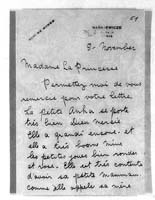 51
9 Novembre
Madame la Princesse
Permettez moi de vous
remercier pour votre lettre.
La petite se porte
très bien Dieu merci
Elle a grandi encore et
elle a très bonne mine
les petites joues bien rondes
et roses. Elle est très contente
d'avoir sa petite Maman
comme elle appelle sa mère